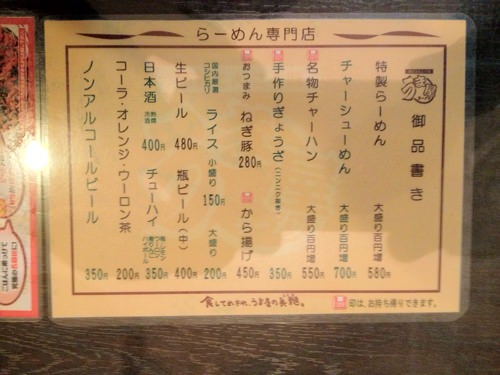 らーめん専門店
御品書き
特製らーめん 大盛り百円増 580円
チャーシューめん 大盛り百円増 700円
名物チャーハン 大盛り百円増 550円
手作りぎょうざ 350円
おつまみ ねぎ豚 280円 から揚げ 450円
国内厳選コシヒカリ ライス 小盛り 150円 大盛り 200円
生ビール 480円 瓶ビール(中) 400円
日本酒 熱燗 冷酒 400円 チューハイ 350円
コーラ・オレンジ・ウーロン茶 200円
ノンアルコールビール 350円
印は、お持ち帰りできます。